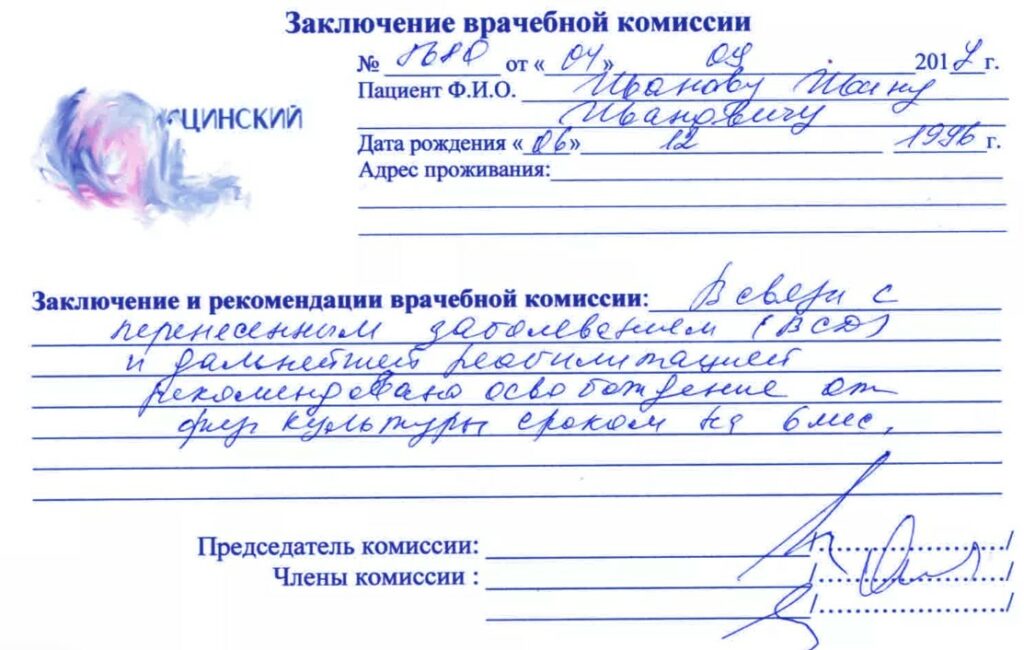 Заключение врачебной комиссии
№ 8680 от « 04 » 09 2017 г.
Пациент Ф.И.О. Иванову Ивану
Ивановичу
ЦИНСКИЙ
Дата рождения « 06 » 12 1996 г.
Адрес проживания:
Заключение и рекомендации врачебной комиссии: В связи с
перенесенным заболеванием (ВСД)
и дальнейшей реабилитацией
рекомендовано освобождение от
физ культуры сроком на 6 мес.
Председатель комиссии:
Члены комиссии :